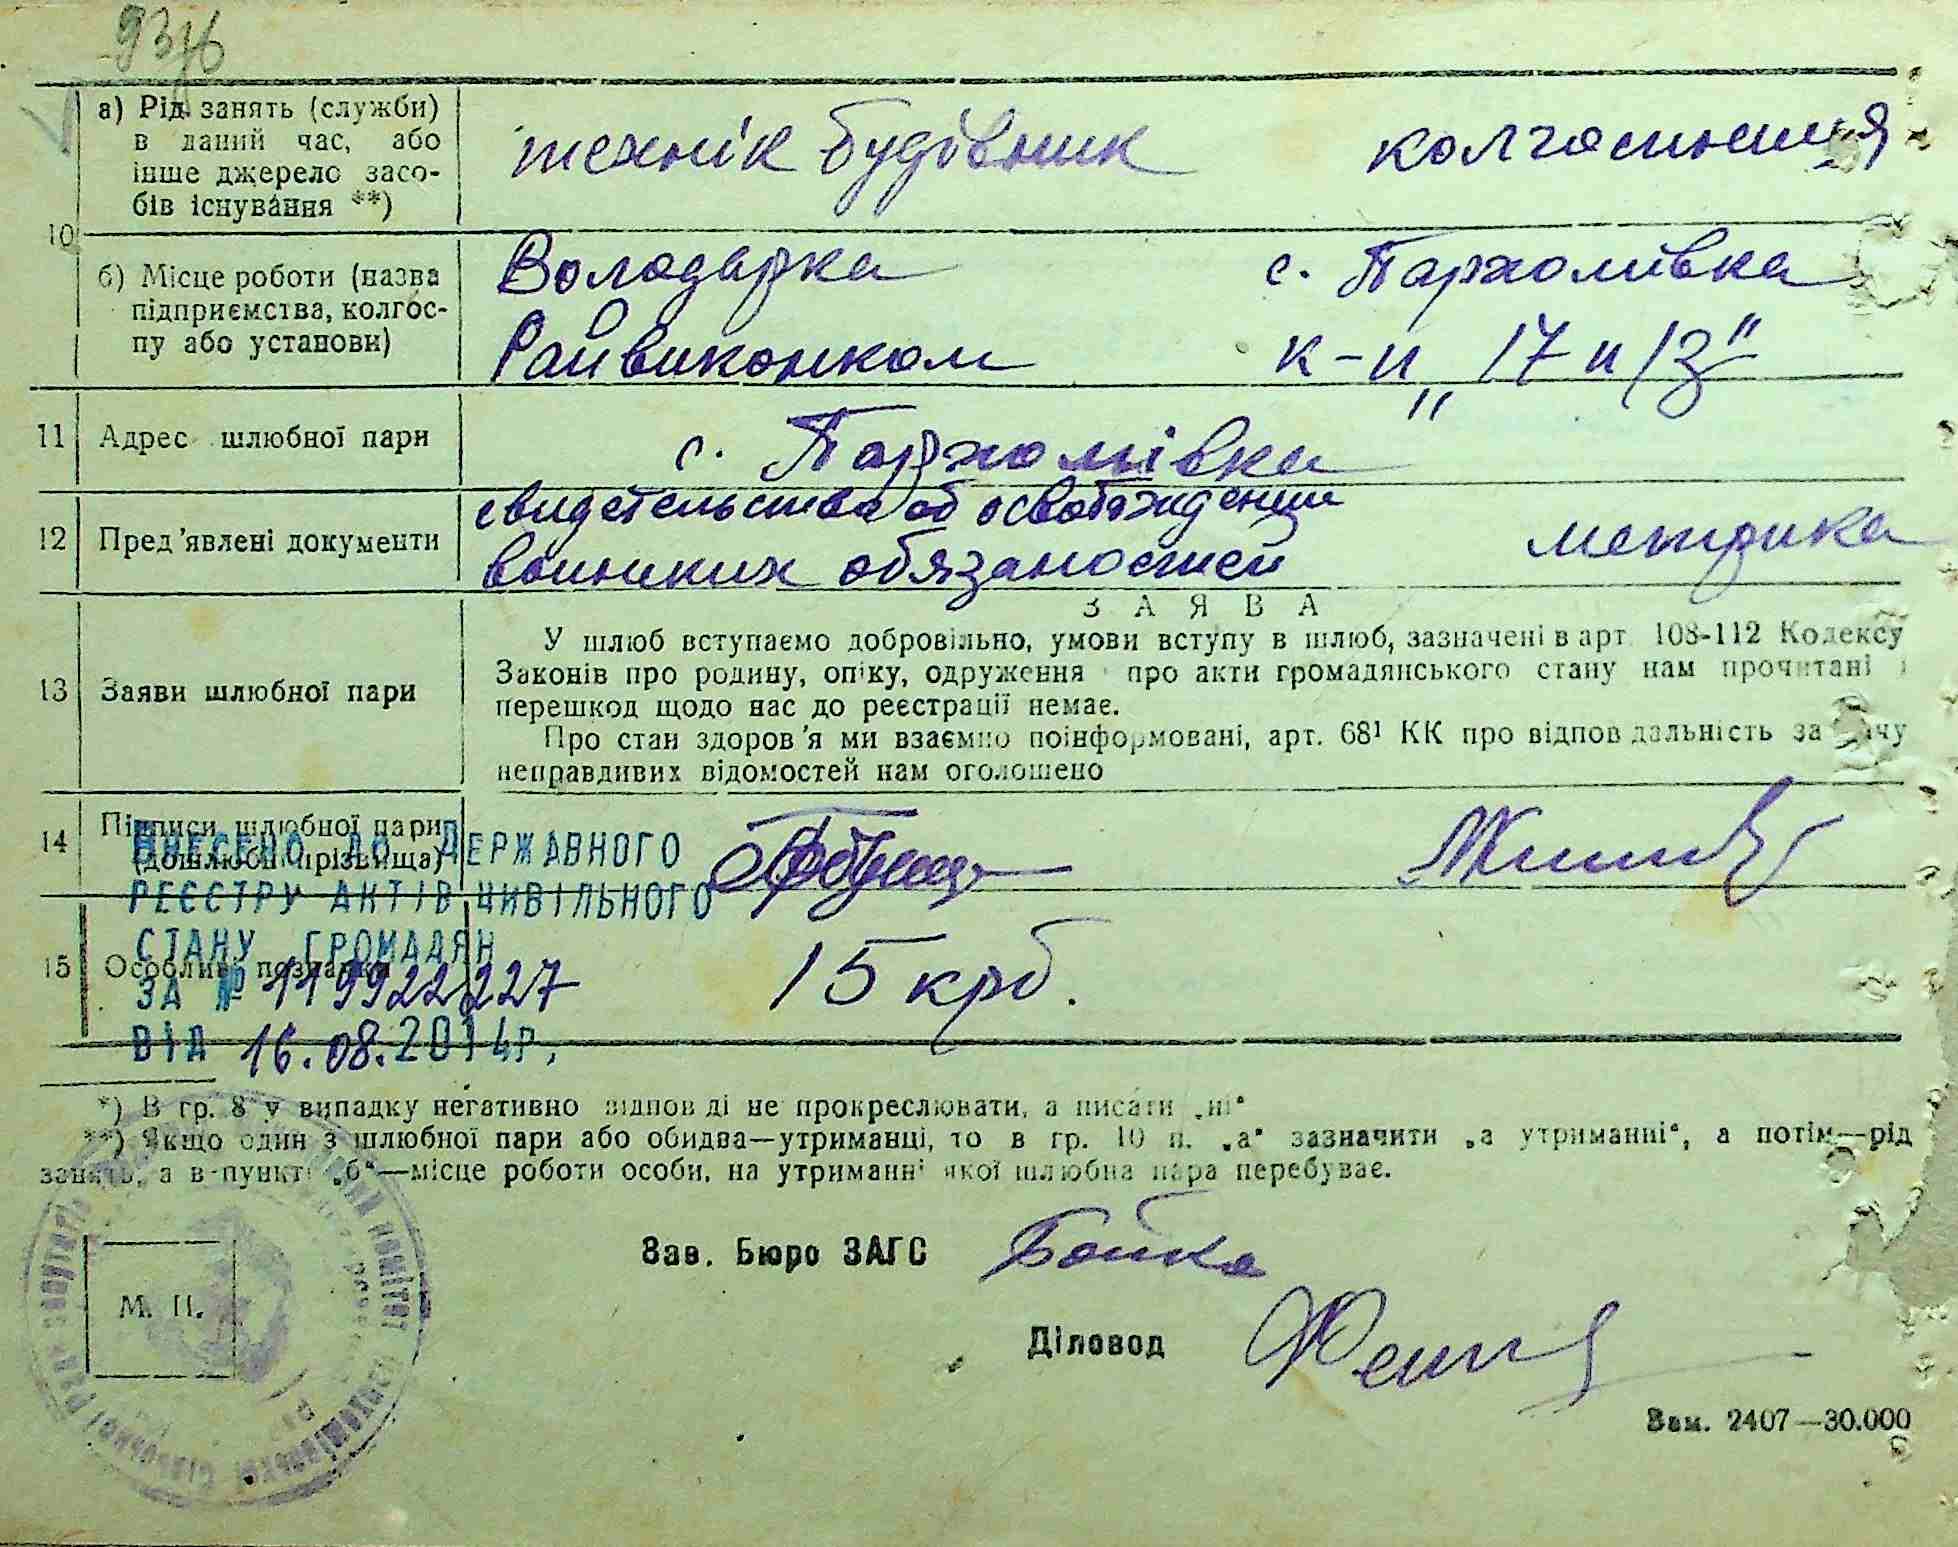 а) Рід занять (служби)
в даний час, або
інше джерело засо-
бів існування **)
технік будівник колгоспниця
10
б) Місце роботи (назва
підприємства, колгос-
пу або установи)
Володарка с. Пархомівка
Райвиконком к-п „17 п/з"
11 Адрес шлюбної пари с. Пархомівка
12 Пред'явлені документи
свидетельства об освобаждении
воинских обязаностей метрика
ЗАЯВА
13 Заяви шлюбної пари
У шлюб вступаємо добровільно, умови вступу в шлюб, зазначені в арт. 108-112 Кодексу
Законів про родину, опіку, одруження про акти громадянського стану нам прочитані і
перешкод щодо нас до реєстрації немає.
Про стан здоров'я ми взаємно поінформовані, арт. 68¹ КК про відповідальність за дачу
неправдивих відомостей нам оголошено
14 Підписи шлюбної пари
(дошлюбні прізвища)
ВНЕСЕНО ДО ДЕРЖАВНОГО
РЕЄСТРУ АКТІВ ЦИВІЛЬНОГО
СТАНУ ГРОМАДЯН
ЗА № 119922227
ВІД 16.08.2014р.
15 Особливі познаки 15 крб.
*) В гр. 8 у випадку негативно відповіді не прокреслювати, а писати „ні"
**) Якщо один з шлюбної пари або обидва—утриманці, то в гр. 10 п. „а" зазначити „а утриманні", а потім—рід
занять, а в пункті „б"—місце роботи особи, на утриманні якої шлюбна пара перебуває.
Зав. Бюро ЗАГС Бойко
М. П.
Діловод
Зам. 2407—30.000